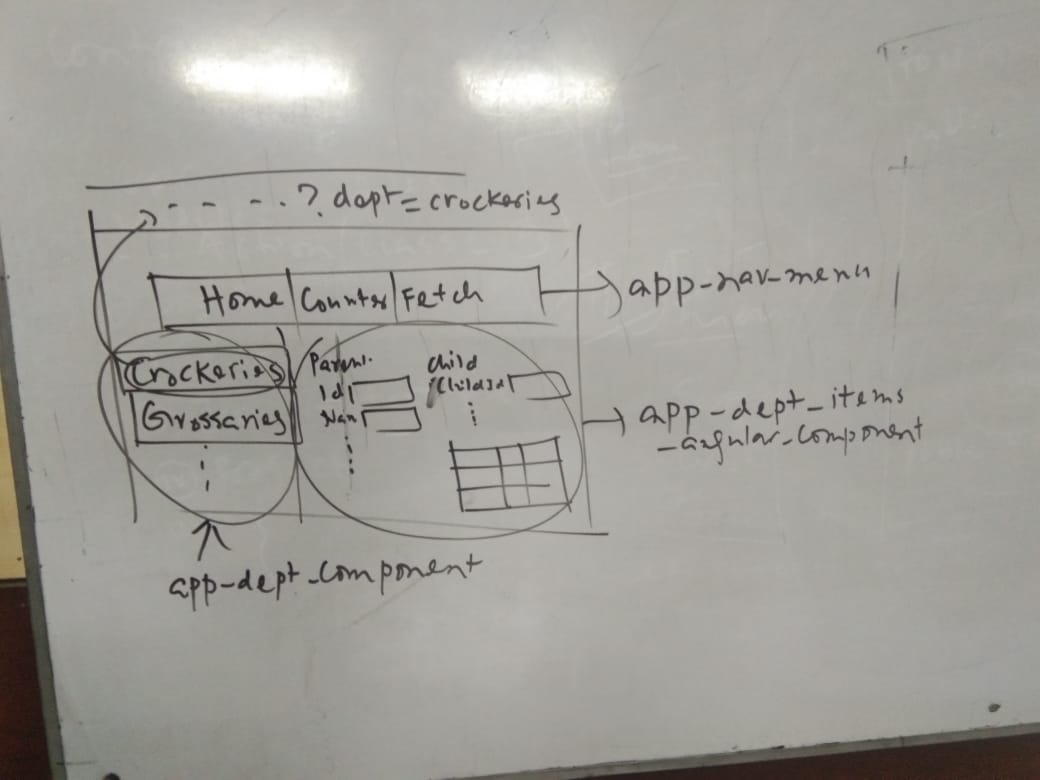 - - - . ? dept=crockeries
Home Counter Fetch
app-nav-menu
Crockeries
Grossaries
Parent.
Id
Nam
Child
app-dept-items
-angular-component
app-dept-component